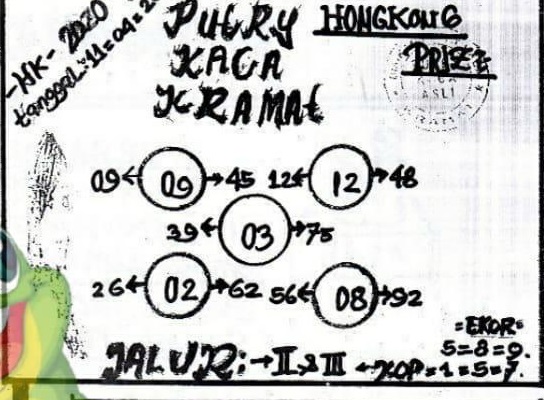 -HK- 2020
tanggal: 11=04=20
PUTRY
KACA
KRAMAt
HONGKONG
PRIZE
ASLI
09 ← 09 → 45
12 ← 12 → 48
39 ← 03 → 75
26 ← 02 → 62
56 ← 08 → 92
=EKOR=
5=8=0.
JALUR: → II & III ← KOP=1=5=7.